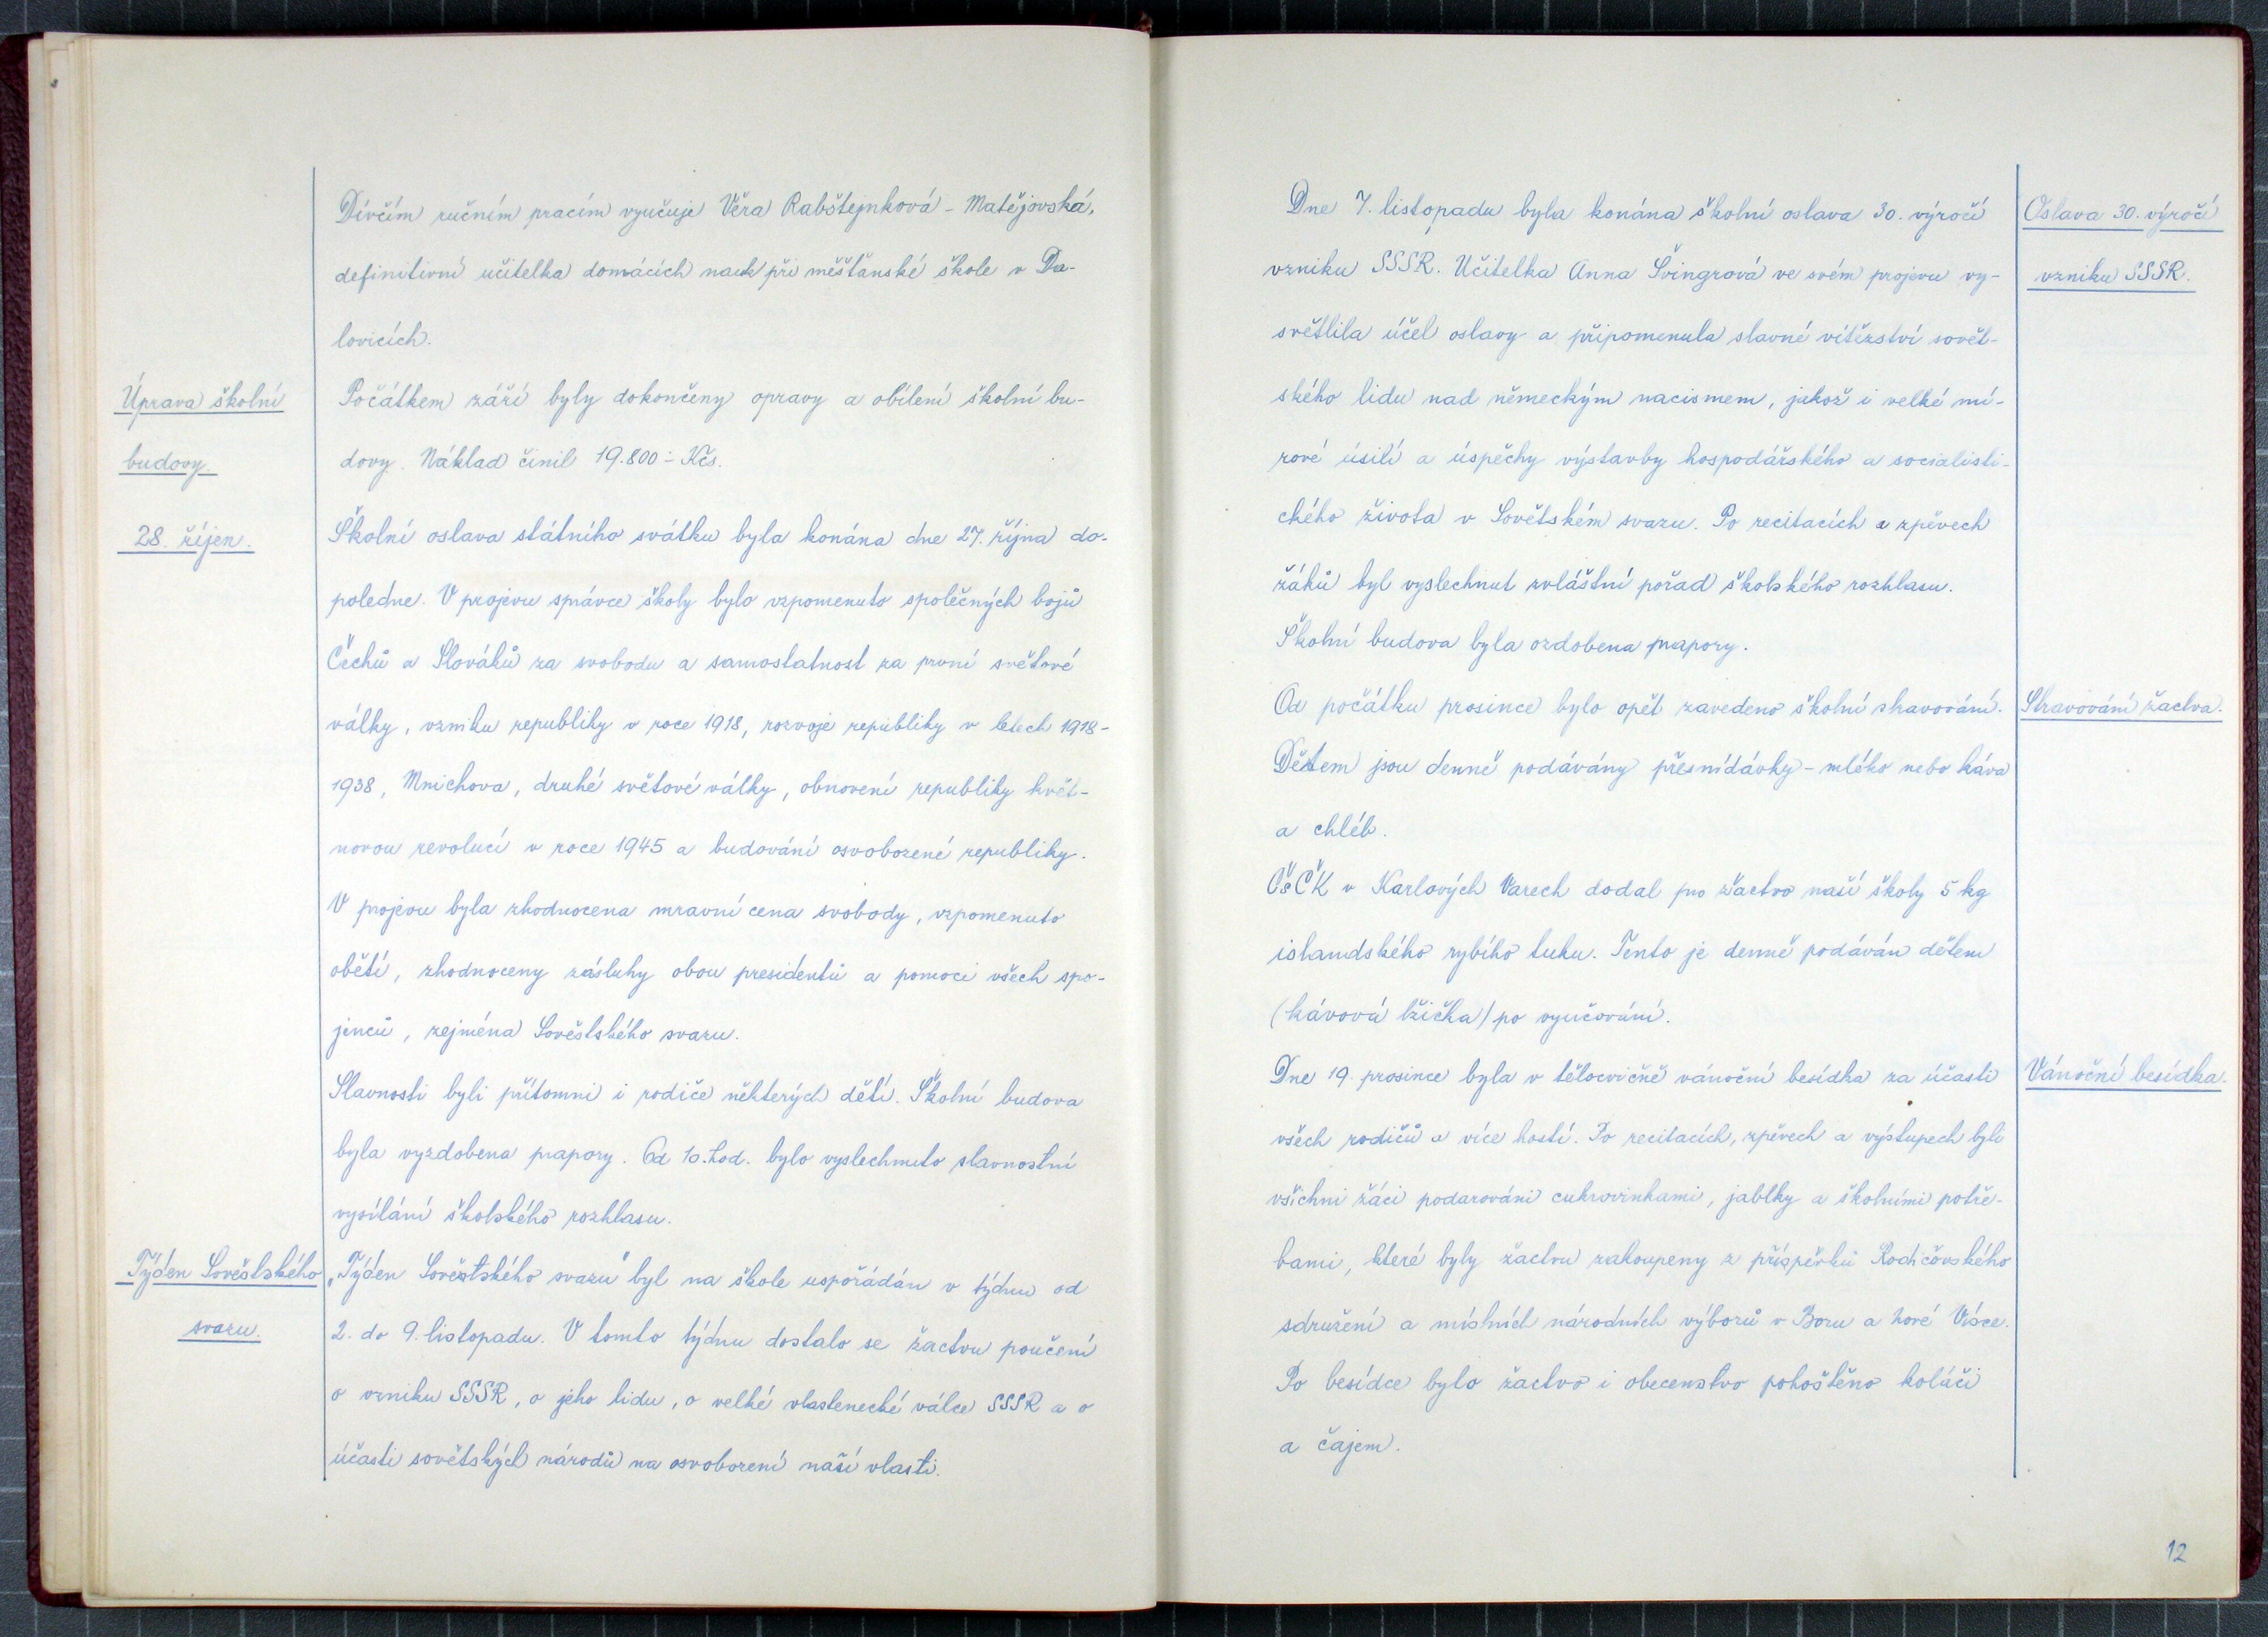 Dívčím ručním pracím vyučuje Věra Rabštejnková - Matějovská,
definitivní učitelka domácích nauk při měšťanské škole v Da-
lovicích.
Úprava školní
budovy.
Počátkem září byly dokončeny opravy a obílení školní bu-
dovy. Náklad činil 19.800.- Kčs.
28. říjen.
Školní oslava státního svátku byla konána dne 27. října do-
poledne. V projevu správce školy bylo vzpomenuto společných bojů
Čechů a Slováků za svobodu a samostatnost za první světové
války, vzniku republiky v roce 1918, rozvoje republiky v letech 1918-
1938, Mnichova, druhé světové války, obnovení republiky květ-
novou revolucí v roce 1945 a budování osvobozené republiky.
V projevu byla zhodnocena mravní cena svobody, vzpomenuto
obětí, zhodnoceny zásluhy obou presidentů a pomoci všech spo-
jenců, zejména Sovětského svazu.
Slavnosti byli přítomni i rodiče některých dětí. Školní budova
byla vyzdobena prapory. Od 10. hod. bylo vyslechnuto slavnostní
vysílání školského rozhlasu.
Týden Sovětského
svazu.
„Týden Sovětského svazu" byl na škole uspořádán v týdnu od
2. do 9. listopadu. V tomto týdnu dostalo se žactvu poučení
o vzniku SSSR, o jeho lidu, o velké vlastenecké válce SSSR a o
účasti sovětských národů na osvobození naší vlasti.
Oslava 30. výročí
vzniku SSSR.
Dne 7. listopadu byla konána školní oslava 30. výročí
vzniku SSSR. Učitelka Anna Švingrová ve svém projevu vy-
světlila účel oslavy a připomenula slavné vítězství sovět-
ského lidu nad německým nacismem, jakož i velké mí-
rové úsilí a úspěchy výstavby hospodářského a socialisti-
ckého života v Sovětském svazu. Po recitacích a zpěvech
žáků byl vyslechnut zvláštní pořad školského rozhlasu.
Školní budova byla ozdobena prapory.
Stravování žactva.
Od počátku prosince bylo opět zavedeno školní stravování.
Dětem jsou denně podávány přesnídávky - mléko nebo káva
a chléb.
ČsČK v Karlových Varech dodal pro žactvo naší školy 5 kg
islandského rybího tuku. Tento je denně podáván dětem
(kávová lžička) po vyučování.
Vánoční besídka.
Dne 19. prosince byla v tělocvičně vánoční besídka za účasti
všech rodičů a více hostí. Po recitacích, zpěvech a výstupech byli
všichni žáci podarováni cukrovinkami, jablky a školními potře-
bami, které byly žactvu zakoupeny z příspěvků Rodičovského
sdružení a místních národních výborů v Boru a Nové Vísce.
Po besídce bylo žactvo i obecenstvo pohoštěno koláči
a čajem.
12